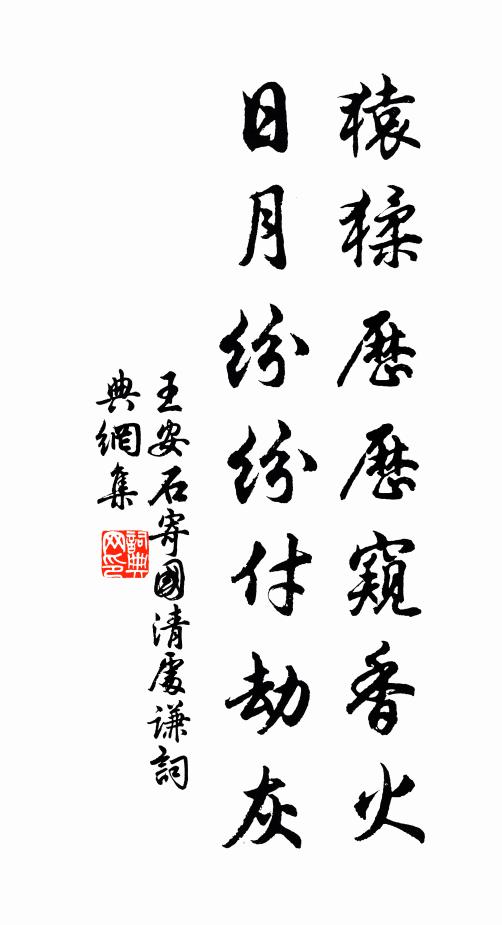 猿猱歷歷窺香火
日月紛紛付劫灰
王安石寄國清處謙詞
典網集
詞典网印